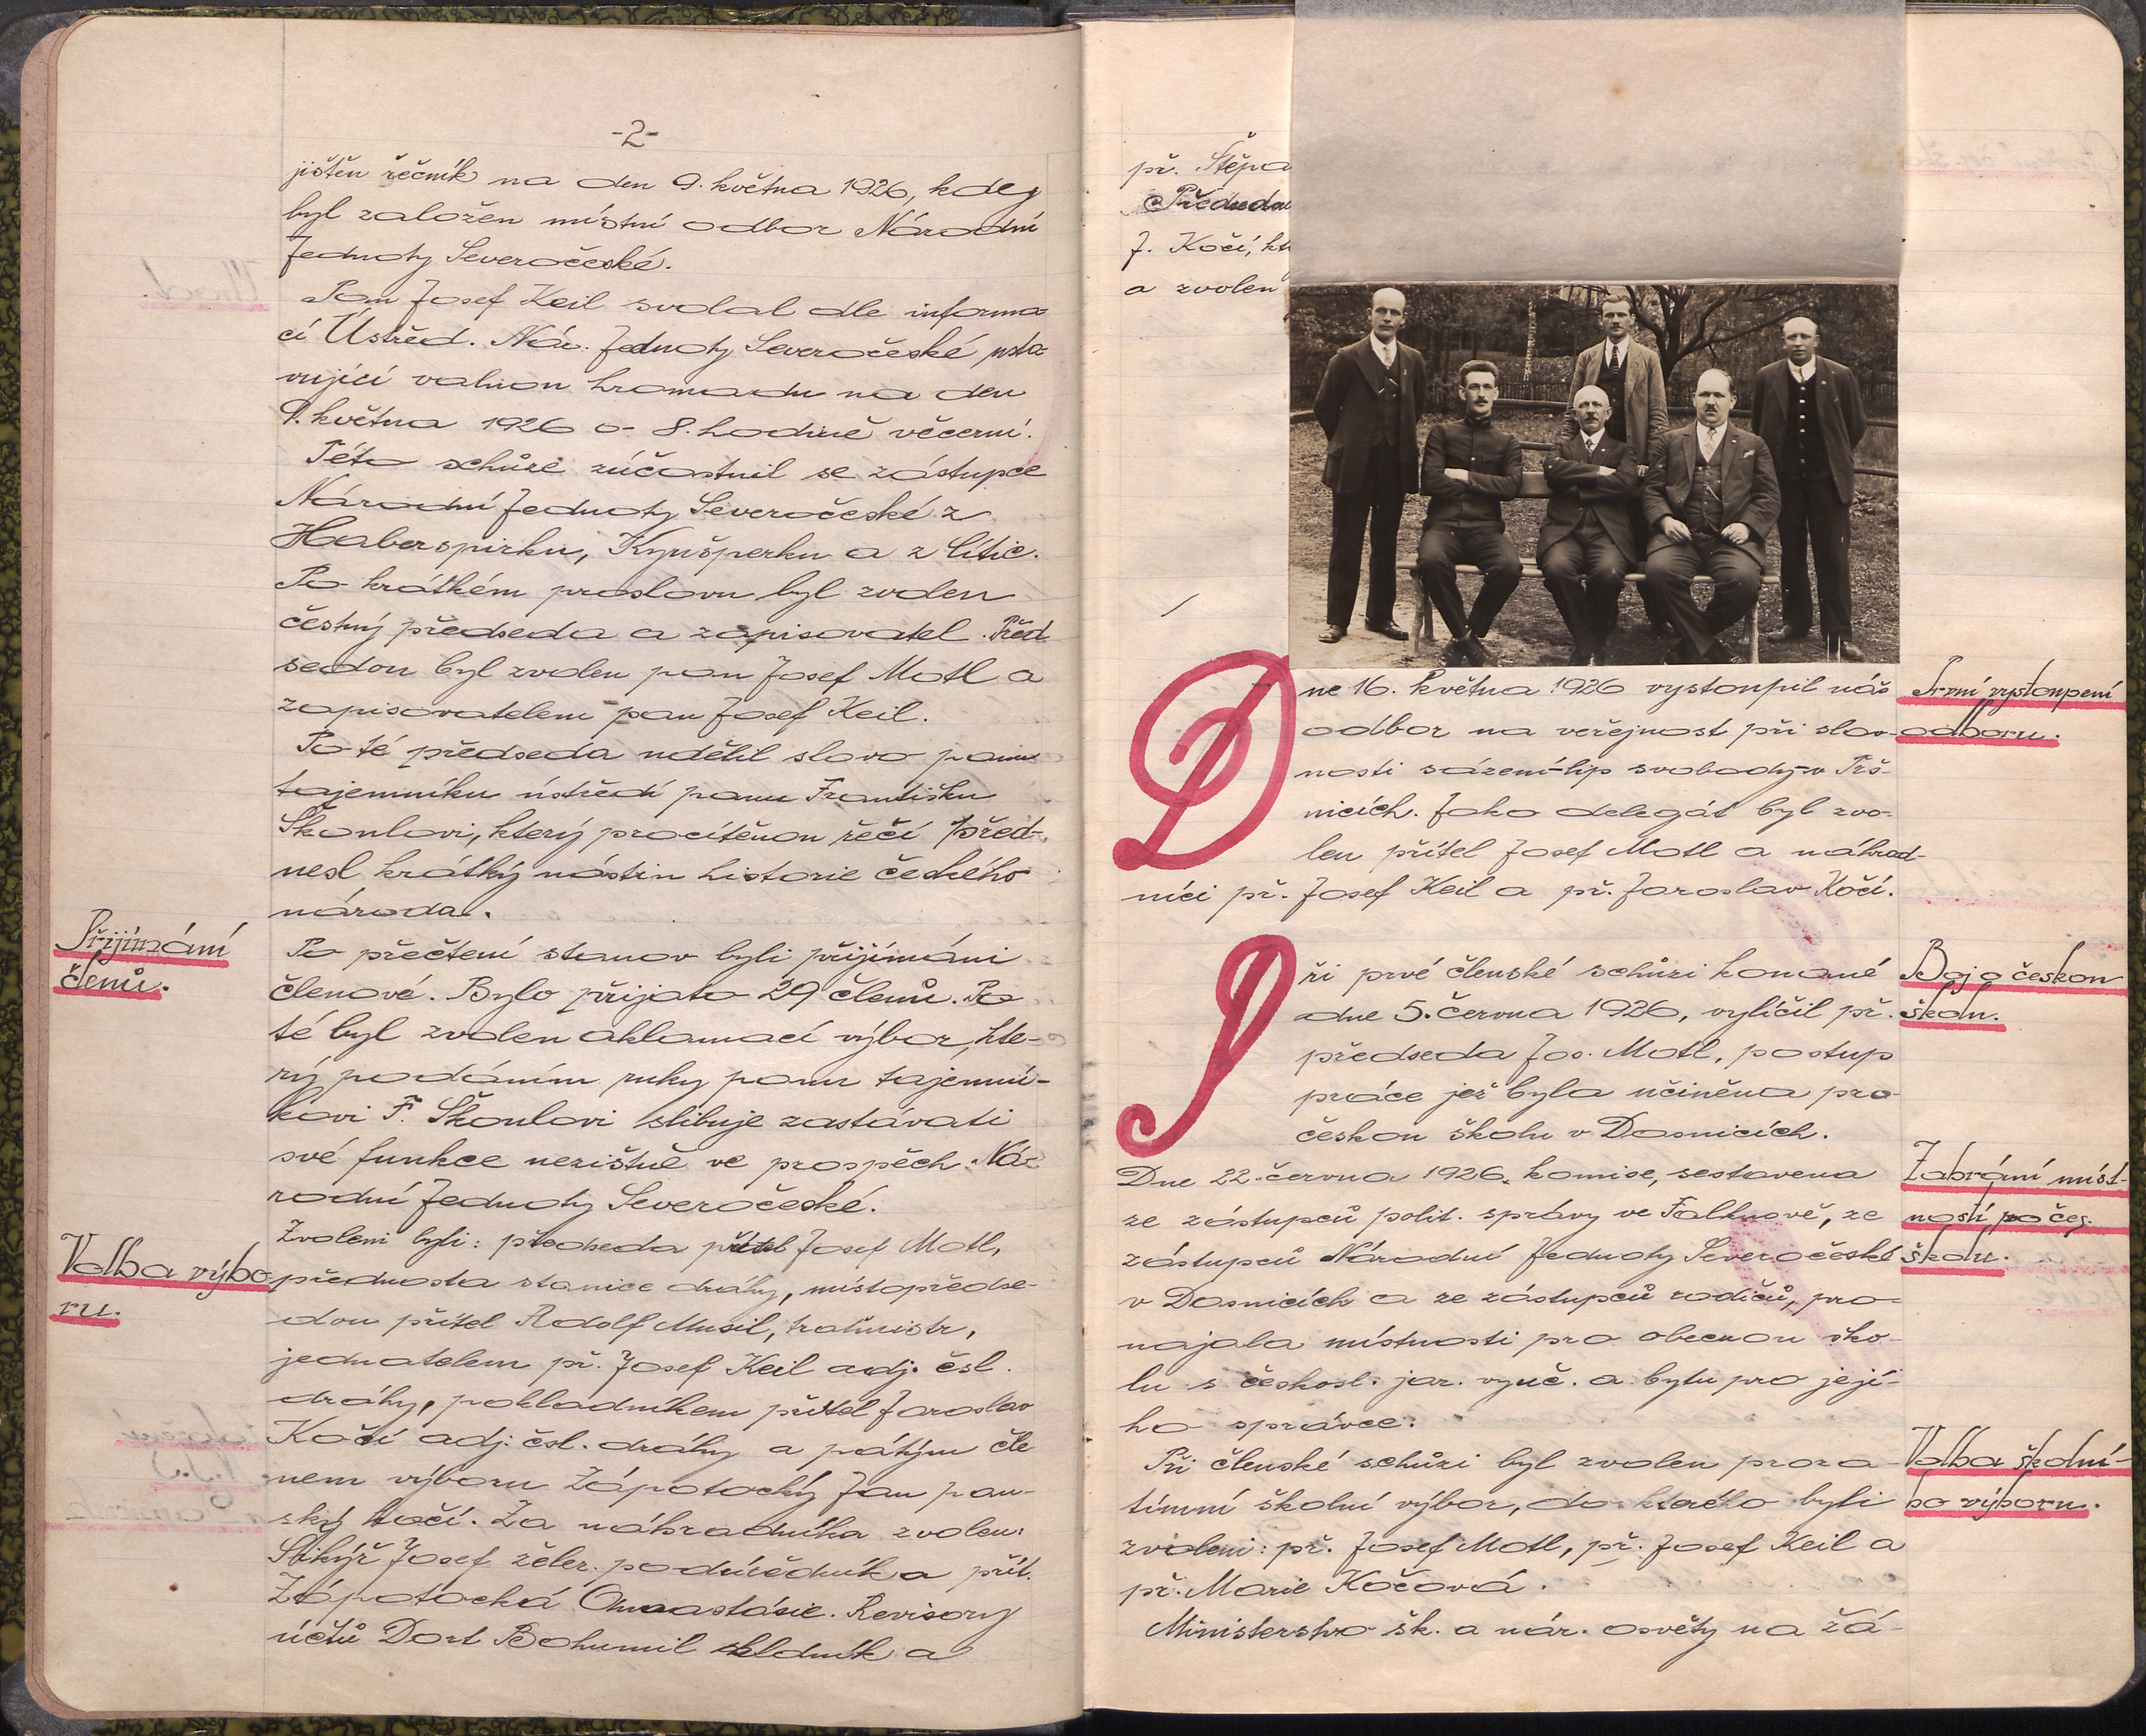 -2-
jištěn řečník na den 9. května 1926, kdey
byl založen místní odbor Národní
Jednoty Severočeské.
Pan Josef Keil svolal dle informa-
cí Ústřed. Nár. Jednoty Severočeské usta-
vující valnou hromadu na den
9. května 1926 o 8. hodině večerní.
Této schůze zúčastnil se zástupce
Národní Jednoty Severočeské z
Haberspirku, Kynšperku a z Lític.
Po krátkém proslovu byl zvolen
čestný předseda a zapisovatel. Před
sedou byl zvolen pan Josef Motl a
zapisovatelem pan Josef Keil.
Po té předseda udělil slovo panu
tajemníku ústředí panu Františku
Škoulovi, který procítěnou řečí před-
nesl krátký nástin historie českého
národa.
Přijímání
členů.
Po přečtení stanov byli přijímáni
členové. Bylo přijato 29 členů. Po
té byl zvolen aklamací výbor, kte-
rý podáním ruky panu tajemní-
kovi F. Škoulovi slibuje zastávati
své funkce nezištně ve prospěch Ná-
rodní Jednoty Severočeské.
Volba výbo-
ru.
Zvoleni byli: předseda přítel Josef Motl,
přednosta stanice dráhy, místopředse-
dou přítel Rudolf Musil, tratmistr,
jednatelem př. Josef Keil adj. čsl.
dráhy, pokladníkem přítel Jaroslav
Kočí adj. čsl. dráhy a pátým čle
nem výboru Zápotocký Jan pan-
ský kočí. Za náhradníka zvolen:
Josef želez. podúředník a přít.
Zápotocká Anastásie. Revisory
účtů Dort Bohumil skladník a
př. Štěpa
Předseda
J. Kočí, kt
a zvolen
Dne 16. května 1926 vystoupil náš
odbor na veřejnost při slav-
nosti sázení lip svobody v Prš-
nicích. Jako delegát byl zvo-
len přítel Josef Motl a náhrad-
níci př. Josef Keil a př. Jaroslav Kočí.
První vystoupení
odboru.
Při prvé členské schůzi konané
dne 5. června 1926, vylíčil př.
předseda Jos. Motl, postup
práce jež byla učiněna pro
českou školu v Dasnicích.
Boj o českou
školu.
Dne 22. června 1926. komise, sestavena
ze zástupců polit. správy ve Falknově, ze
zástupců Národní Jednoty Severočeské
v Dasnicích a ze zástupců rodičů, pro-
najala místnosti pro obecnou ško-
lu s českosl. jaz. vyuč. a bytu pro její-
ho správce.
Zabrání míst-
ností po čes.
školu.
Při členské schůzi byl zvolen proza-
tímní školní výbor, do kterého byli
zvoleni: př. Josef Motl, př. Josef Keil a
př. Marie Kočová.
Volba školní-
ho výboru.
Ministerstvo šk. a nár. osvěty na žá-